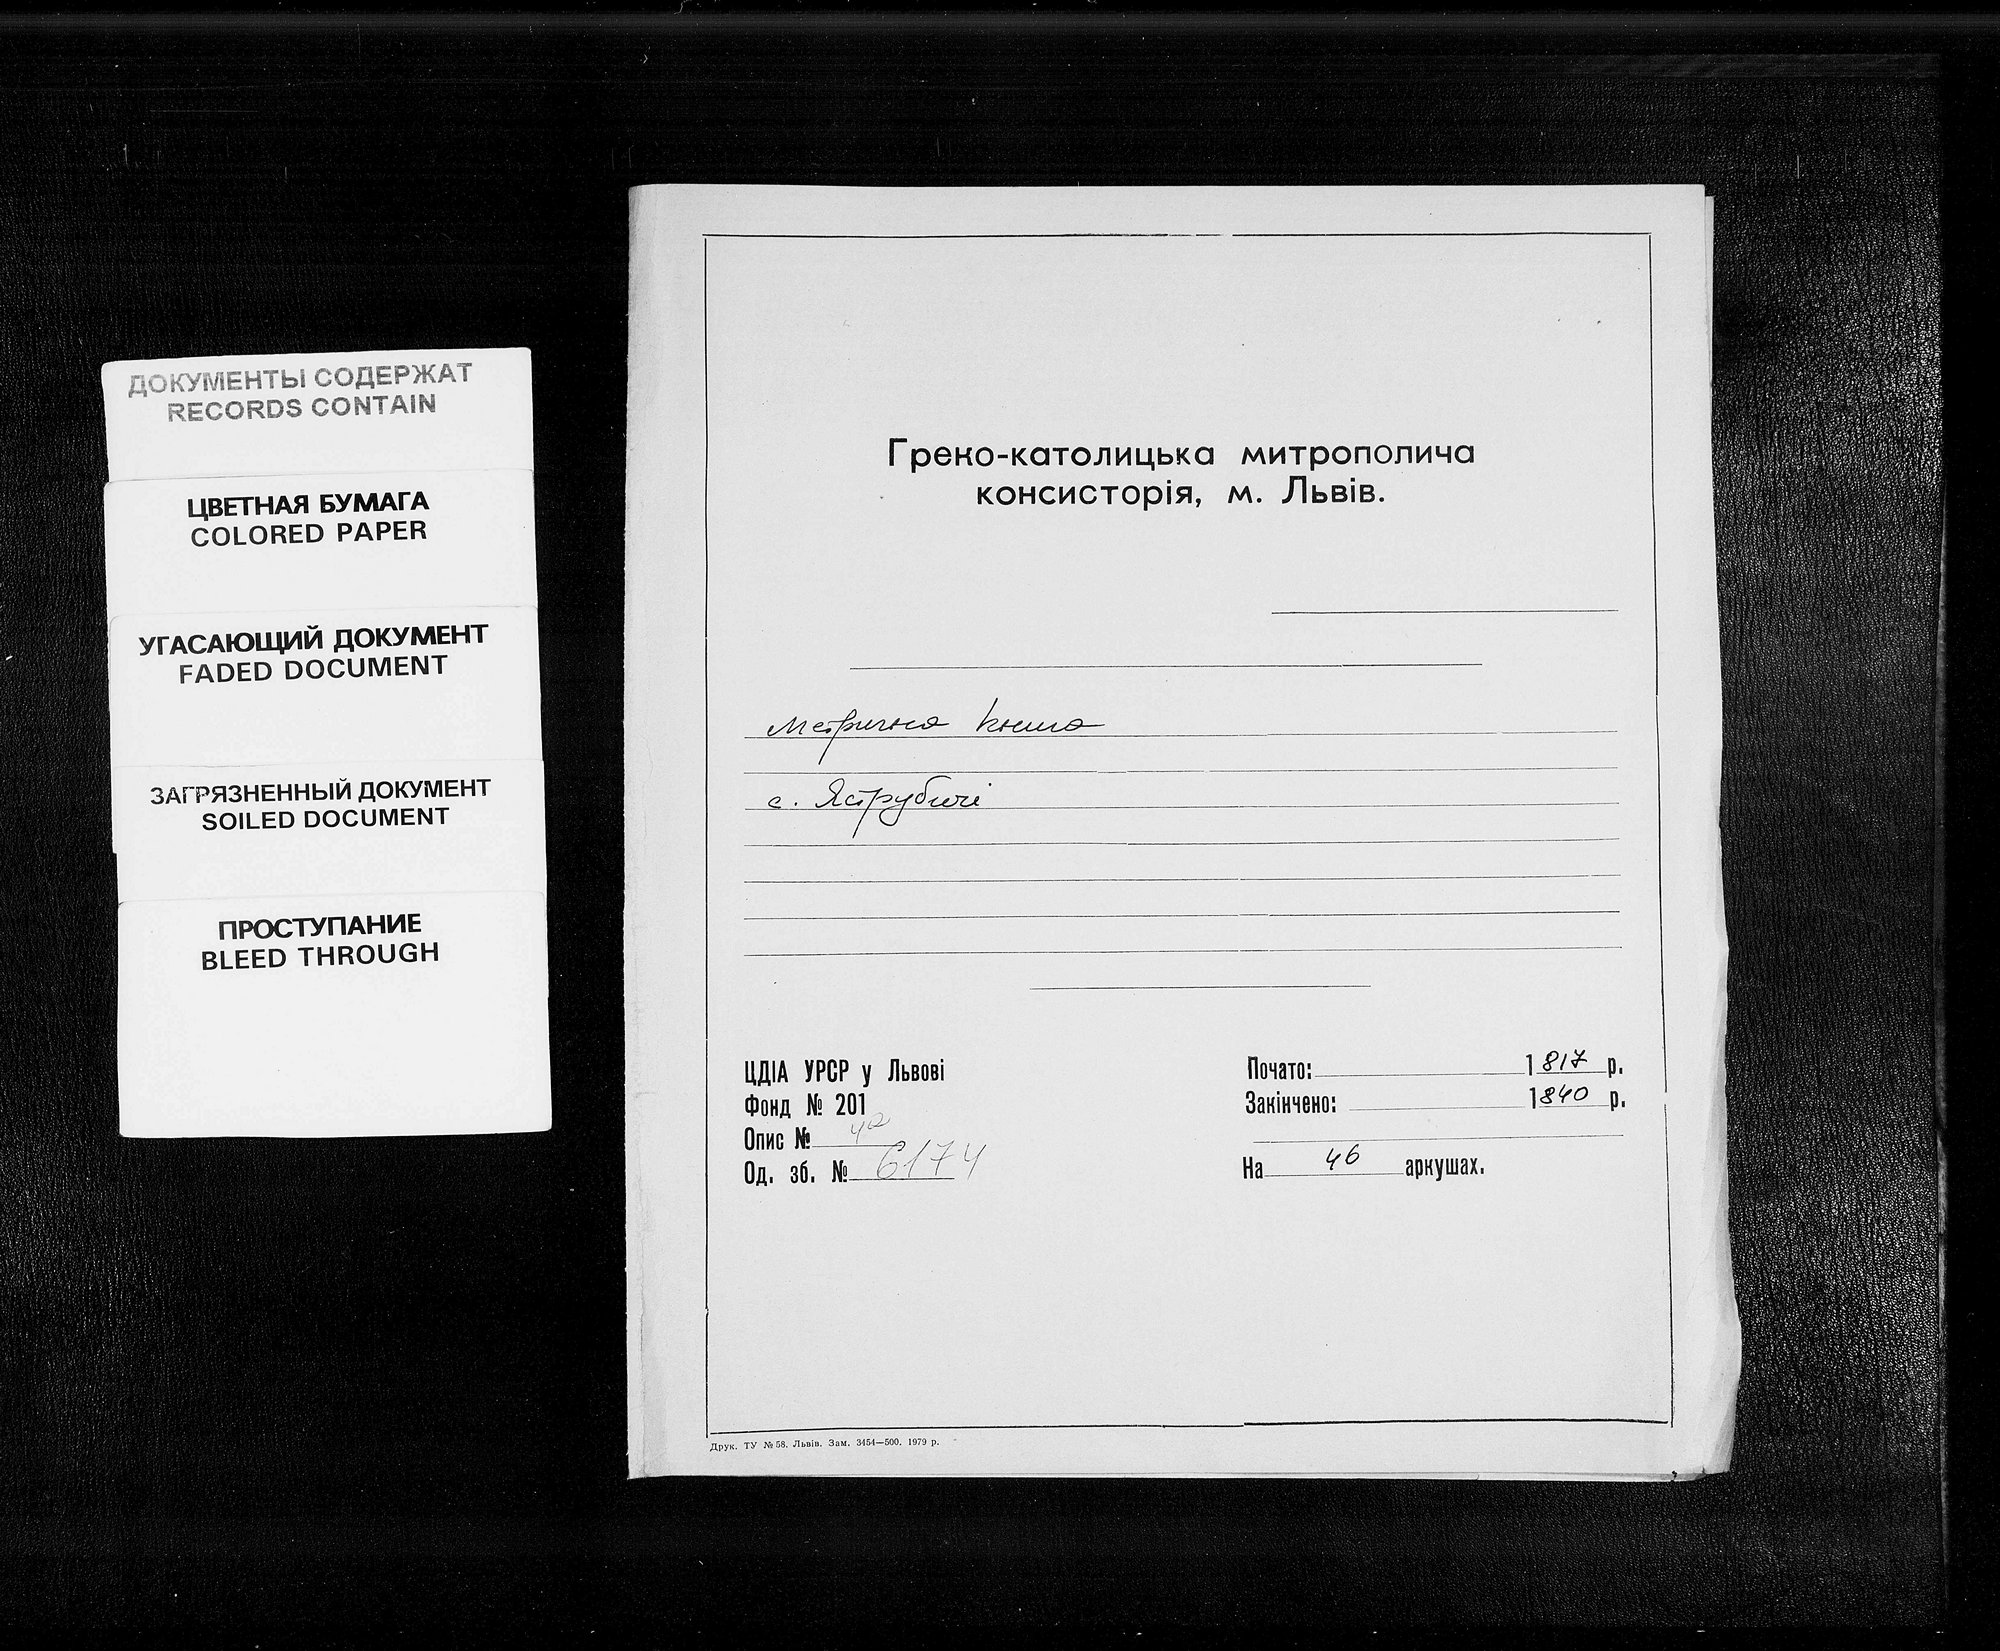 ДОКУМЕНТЫ СОДЕРЖАТ
RECORDS CONTAIN
ЦВЕТНАЯ БУМАГА
COLORED PAPER
УГАСАЮЩИЙ ДОКУМЕНТ
FADED DOCUMENT
ЗАГРЯЗНЕННЫЙ ДОКУМЕНТ
SOILED DOCUMENT
ПРОСТУПАНИЕ
BLEED THROUGH
Греко-католицька митрополича
консисторія, м. Львів.
Метрична книга
с. Яструбичі
ЦДІА УРСР у Львові
Фонд № 201
Опис № 4а
Од. зб. № 6174
Почато: 1817 р.
Закінчено: 1840 р.
На 46 аркушах.
Друк. ТУ № 58. Львів. Зам. 3454—500. 1979 р.